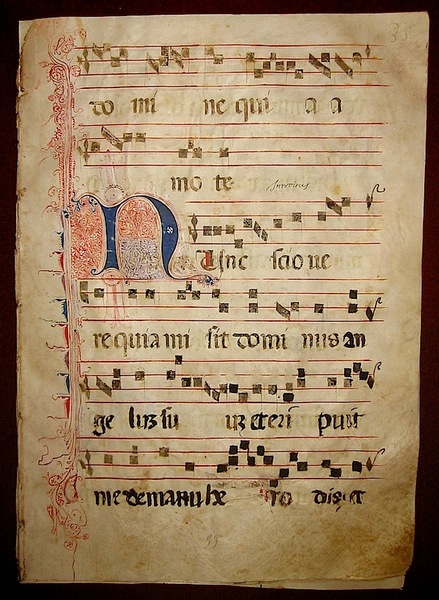 do mi ne qui a a
mo te
Nunc scio ue
re quia mi sit domi nus an
ge lum su um et eri puit
me de manu he ro dis et